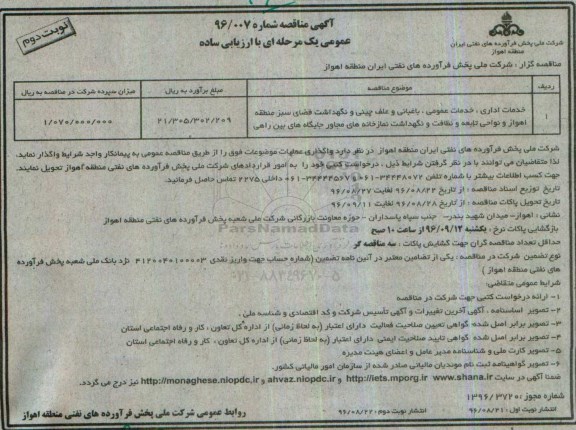 نوبت دوم
آگهی مناقصه شماره ۹۶/۰۰۷
عمومی یک مرحله ای با ارزیابی ساده
شرکت ملی پخش فرآورده های نفتی ایران
منطقه اهواز
مناقصه گزار : شرکت ملی پخش فرآورده های نفتی ایران منطقه اهواز
ردیف موضوع مناقصه مبلغ برآورد به ریال میزان سپرده شرکت در مناقصه به ریال
۱ خدمات اداری ، خدمات عمومی ، باغبانی و علف چینی و نگهداشت فضای سبز منطقه اهواز و نواحی تابعه و نظافت و نگهداشت نمازخانه های مجاور جایگاه های بین راهی ۲۱/۳۰۵/۳۰۲/۲۰۹ ۱/۰۷۰/۰۰۰/۰۰۰
شرکت ملی پخش فرآورده های نفتی ایران منطقه اهواز در نظر دارد واگذاری عملیات موضوعات فوق را از طریق مناقصه عمومی به پیمانکار واجد شرایط واگذار نماید.
لذا متقاضیان می توانند با در نظر گرفتن شرایط ذیل ، درخواست کتبی خود را به امور قراردادهای شرکت ملی پخش فرآورده های نفتی منطقه اهواز تحویل نمایند.
جهت کسب اطلاعات بیشتر با شماره تلفن ۳۴۴۴۸۰۷۲-۰۶۱ و ۳۴۴۴۴۵۶۷-۰۶۱ داخلی ۲۲۷۵ تماس حاصل فرمائید.
تاریخ توزیع اسناد مناقصه : از تاریخ ۹۶/۰۸/۲۳ لغایت ۹۶/۰۸/۲۷
تاریخ تحویل پاکات مناقصه : از تاریخ ۹۶/۰۸/۲۸ لغایت ۹۶/۰۹/۱۱
نشانی : اهواز- میدان شهید بندر- جنب سپاه پاسداران - حوزه معاونت بازرگانی شرکت ملی پخش فرآورده های نفتی منطقه اهواز
بازگشایی پاکات نرخ : یکشنبه ۹۶/۰۹/۱۲ از ساعت ۱۰ صبح
حداقل تعداد مناقصه گران جهت گشایش پاکات : سه مناقصه گر
نوع تضمین شرکت در مناقصه : یکی از تضامین معتبر در آئین نامه تضمین (شماره حساب جهت واریز نقدی ۴۱۲۰۰۴۰۱۰۰۰۰۳ نزد بانک ملی شعبه پخش فرآورده های نفتی منطقه اهواز )
شرایط عمومی متقاضی:
۱- ارائه درخواست کتبی جهت شرکت در مناقصه
۲- تصویر اساسنامه ، آگهی آخرین تغییرات و آگهی تأسیس شرکت و کد اقتصادی و شناسه ملی .
۳- تصویر برابر اصل شده گواهی تعیین صلاحیت فعالیت دارای اعتبار (به لحاظ زمانی) از اداره کل تعاون ، کار و رفاه اجتماعی استان
۴- تصویر برابر اصل شده گواهی تایید صلاحیت ایمنی دارای اعتبار (به لحاظ زمانی) از اداره کل تعاون ، کار و رفاه اجتماعی استان
۵- تصویر کارت ملی و شناسنامه مدیر عامل و اعضای هیئت مدیره
۶- تصویر گواهینامه ثبت نام مودیان مالیاتی صادر شده از سازمان امور مالیاتی کشور.
ضمنا آگهی در سایت www.shana.ir و http://iets.mporg.ir و ahvaz.niopdc.ir و http://monaghese.niopdc.ir نیز درج می گردد.
شماره مجوز : ۱۳۹۶/۳۷۲۰
انتشار نوبت اول : ۹۶/۰۸/۲۱ انتشار نوبت دوم : ۹۶/۰۸/۲۲
روابط عمومی شرکت ملی پخش فرآورده های نفتی منطقه اهواز